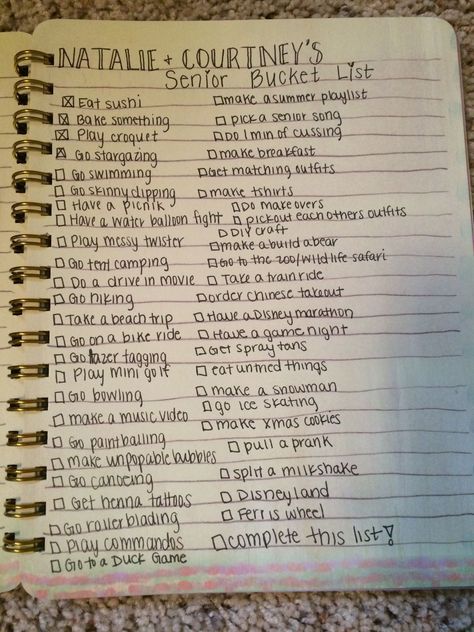 NATALIE + COURTNEY'S
Senior Bucket List
Eat sushi
Bake something
Play croquet
Go stargazing
Go swimming
Go skinny dipping
Have a picnik
Have a water balloon fight
Play messy twister
Go tent camping
Do a drive in movie
Go hiking
Take a beach trip
Go on a bike ride
Go lazer tagging
Play mini golf
Go bowling
make a music video
Go paintballing
make unpopable bubbles
Go canoeing
Get henna tattoos
Go rollerblading
Play commandos
Go to a Duck Game
make a summer playlist
pick a senior song
Do 1 min of cussing
make breakfast
Get matching outfits
make tshirts
Do makeovers
pick out each others outfits
DIY craft
make a build a bear
Go to the zoo/wild life safari
Take a train ride
order chinese takeout
Have a Disney marathon
Have a game night
Get spray tans
eat untried things
make a snowman
go ice skating
make xmas cookies
pull a prank
split a milkshake
Disneyland
Ferris wheel
complete this list!